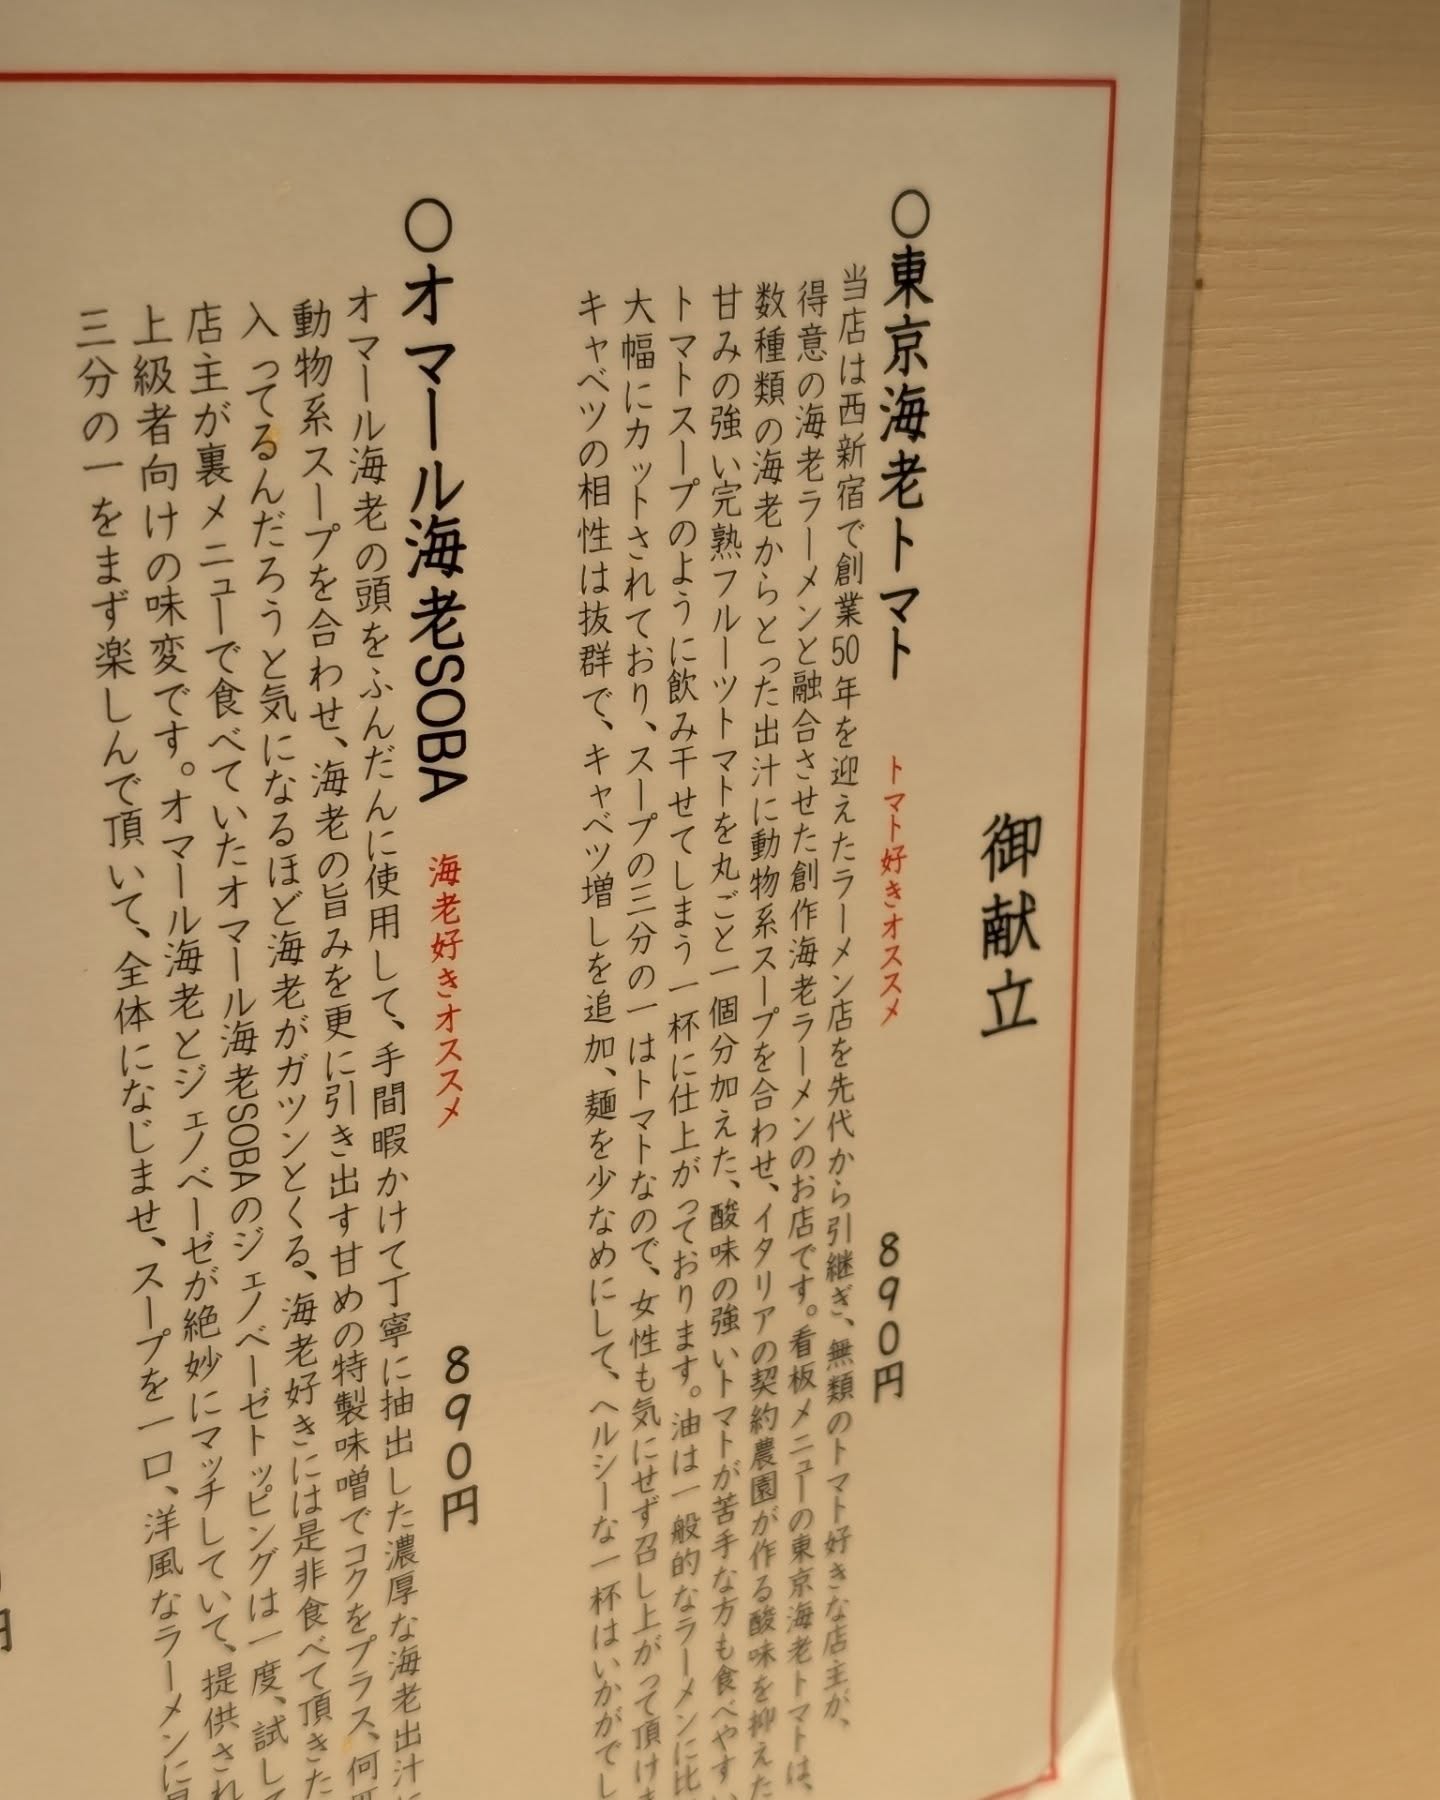 御献立
〇東京海老トマト トマト好きオススメ 890円
当店は西新宿で創業50年を迎えたラーメン店を先代から引継ぎ、無類のトマト好きな店主が、
得意の海老ラーメンと融合させた創作海老ラーメンのお店です。看板メニューの東京海老トマトは、
数種類の海老からとった出汁に動物系スープを合わせ、イタリアの契約農園が作る酸味を抑えた
甘みの強い完熟フルーツトマトを丸ごと一個分加えた、酸味の強いトマトが苦手な方も食べやすい
トマトスープのように飲み干せてしまう一杯に仕上がっております。油は一般的なラーメンに比
大幅にカットされており、スープの三分の一はトマトなので、女性も気にせず召し上がって頂けま
キャベツの相性は抜群で、キャベツ増しを追加、麺を少なめにして、ヘルシーな一杯はいかがでし
〇オマール海老SOBA 海老好きオススメ 890円
オマール海老の頭をふんだんに使用して、手間暇かけて丁寧に抽出した濃厚な海老出汁に
動物系スープを合わせ、海老の旨みを更に引き出す甘めの特製味噌でコクをプラス、何
入ってるんだろうと気になるほど海老がガツンとくる、海老好きには是非食べて頂きた
店主が裏メニューで食べていたオマール海老SOBAのジェノベーゼトッピングは一度、試して
上級者向けの味変です。オマール海老とジェノベーゼが絶妙にマッチしていて、提供され
三分の一をまず楽しんで頂いて、全体になじませ、スープを一口、洋風なラーメンに
円